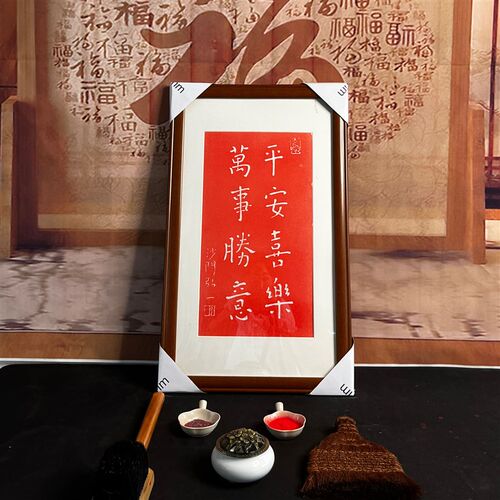 平安喜樂
萬事勝意
沙門弘一
福